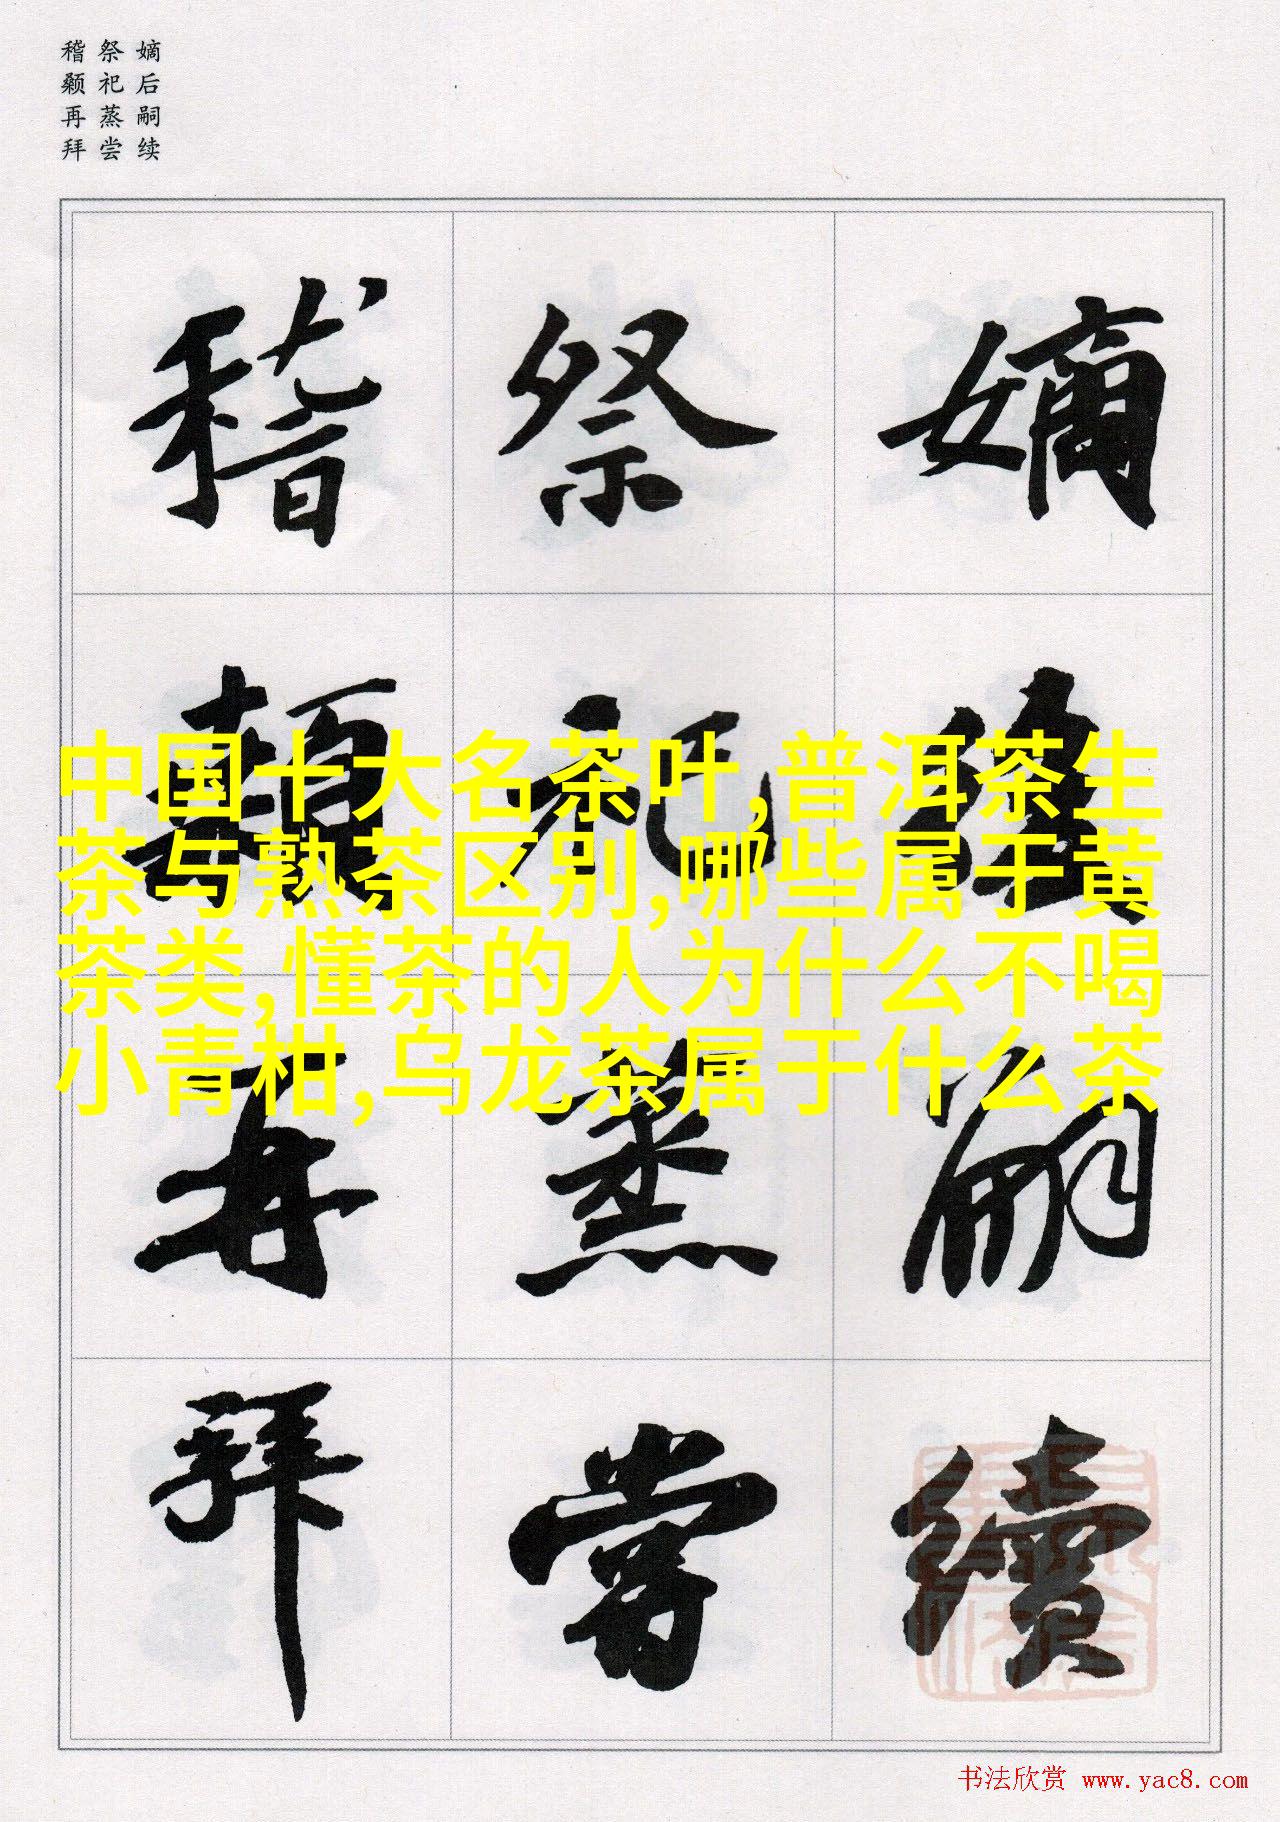 嫡后嗣续
祭祀蒸尝
稽颡再拜
嫡後嗣續
祭祀蒸嘗
稽顙再拜
中国十大名茶叶,普洱茶生
茶与熟茶区别,哪些属于黄
茶类,懂茶的人为什么不喝
小青柑,乌龙茶属于什么茶
书法欣赏 www.yac8.com